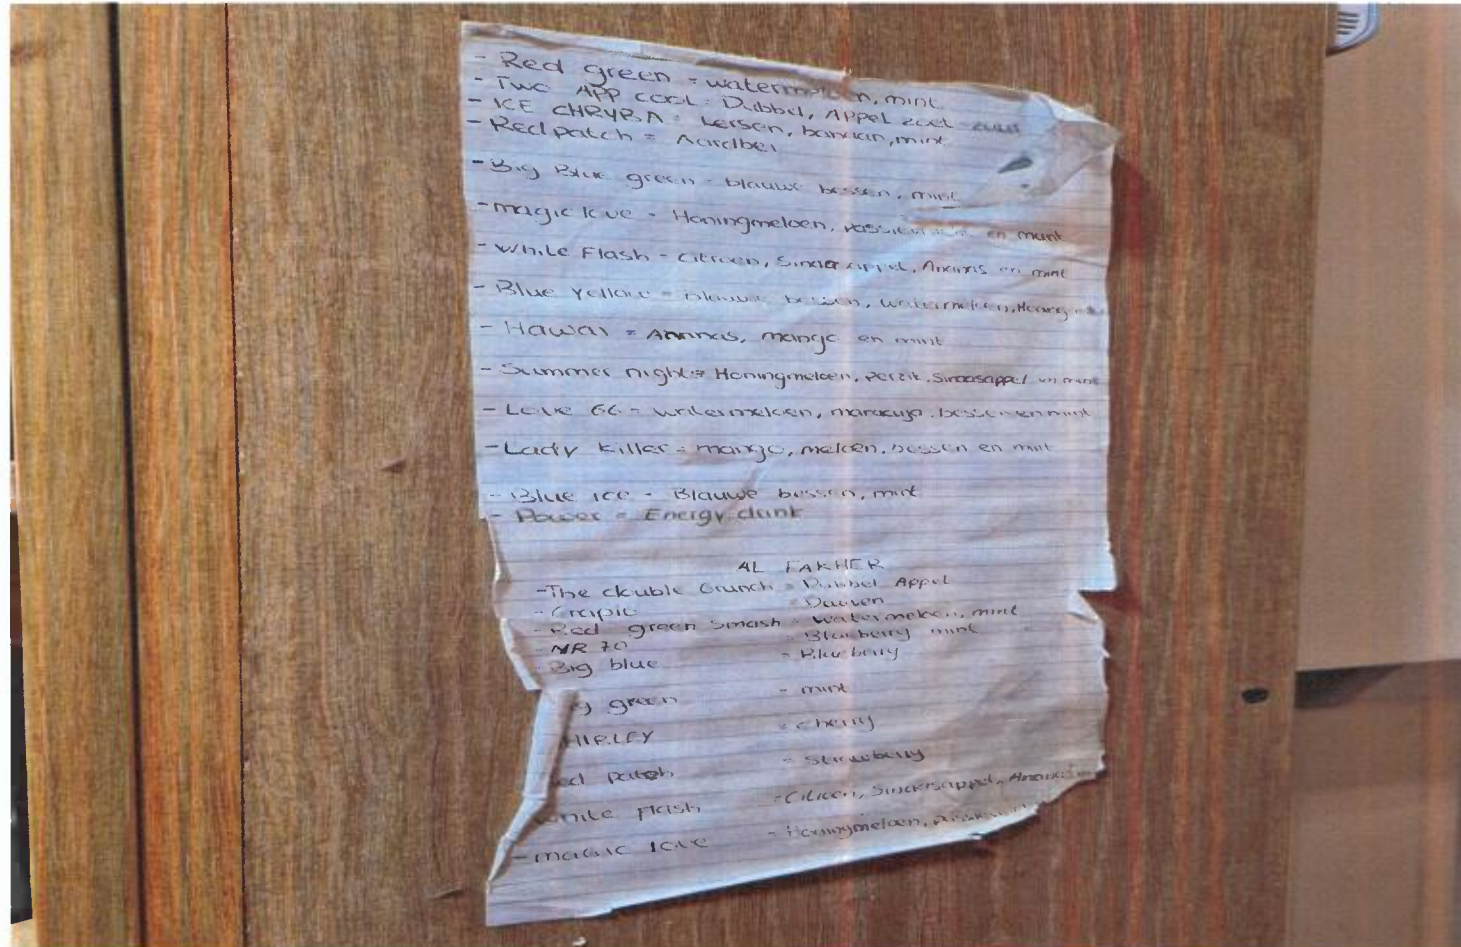 - Red green = watermeloen, mint
- Two APP cool = Dubbel, Appel zoet zuur
- ICE CHRYBA = kersen, banaan, mint
- Red patch = Aardbei
- Big Blue green - blauwe bessen, mint
- magic love - Honingmeloen, en munt
- White Flash - citroen, Sinaasappel, Ananas en mint
- Blue Yellow = blauwe bessen, watermeloen, Honing
- Hawai = Ananas, mango en mint
- Summer night = Honingmeloen, perzik, Sinaasappel en mint
- Love 66 = watermeloen, maracuja, bessen en mint
- Lady Killer = mango, meloen, bessen en mint
- Blue ice - Blauwe bessen, mint
- Power = Energy drink
AL FAKHER
- The double Crunch = Dubbel Appel
- Grapic = Druiven
- Red green Smash = Watermeloen, mint
- NR 70 = Blueberry mint
- Big blue = Blueberry
g green - mint
HIRLEY = cherry
ed patch = Strawberry
white flash = Citroen, Sinaasappel, Ananas
- magic love = Honingmeloen,